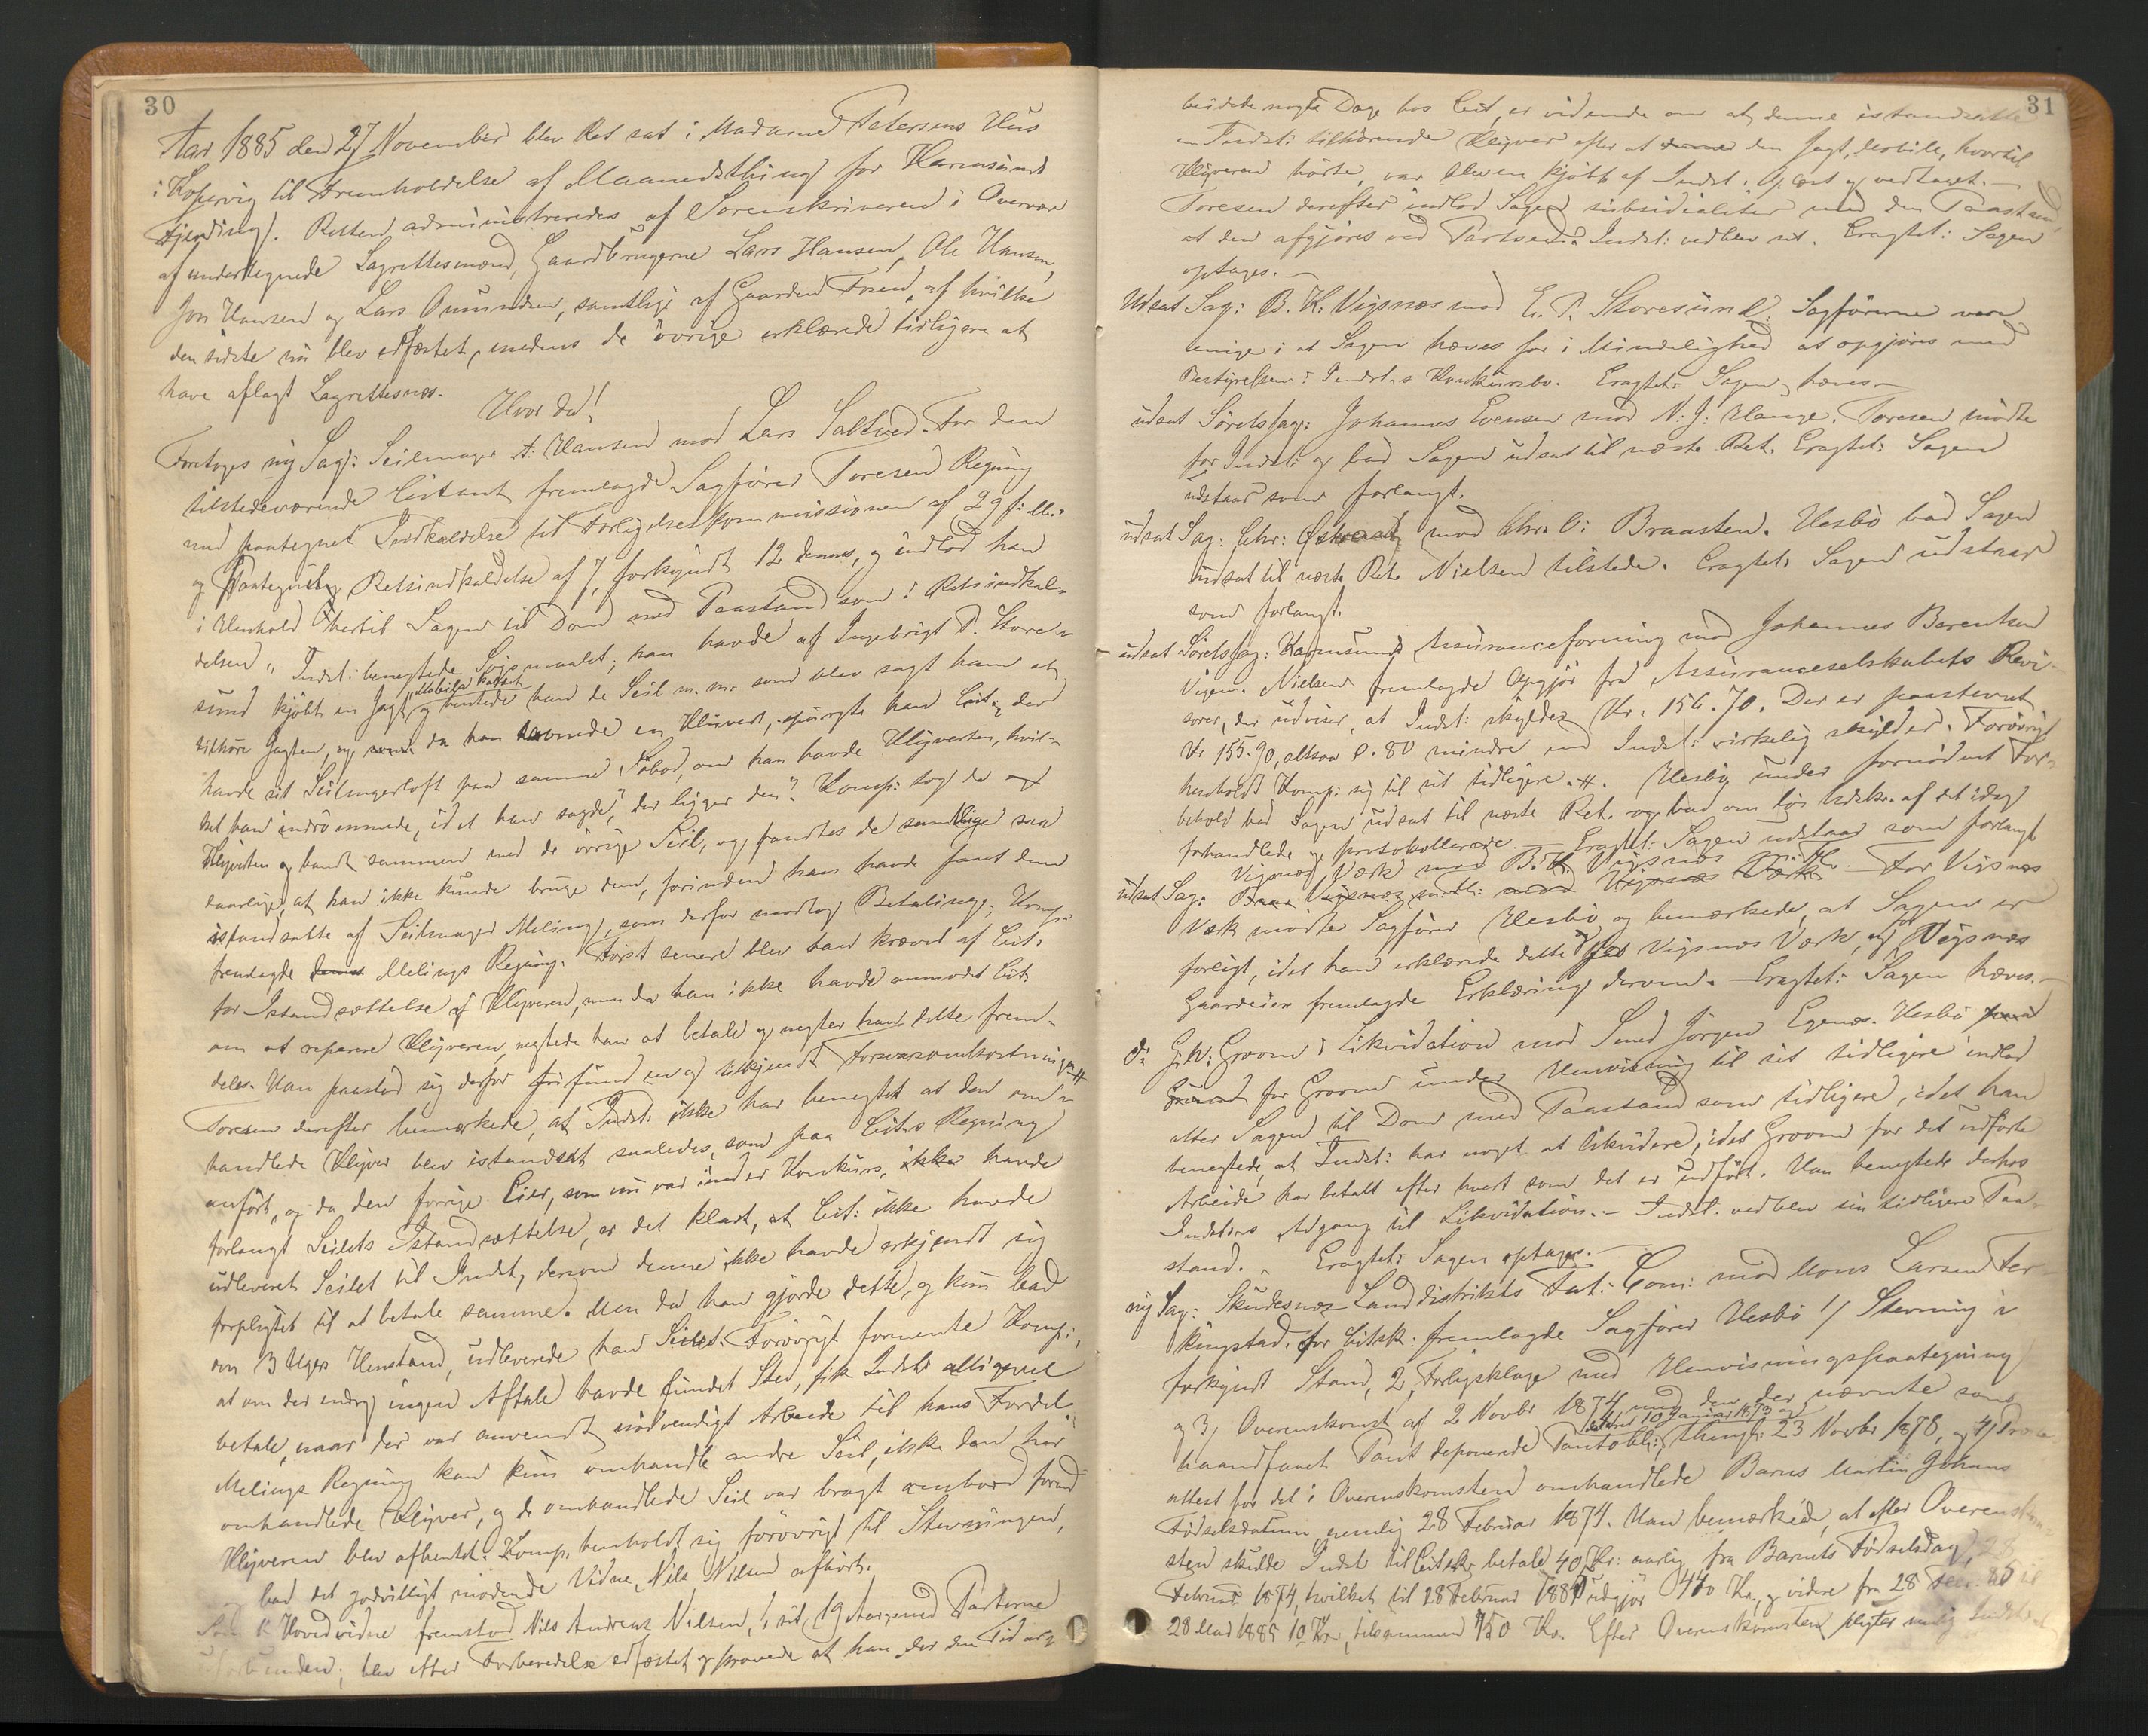 30
Aar 1885 den 27 November blev Ret sat i Madame Petersens Hus
i Kopervig til Fremholdelse af Maanedsthing for Karmsund
Thjeding. Retten administreredes af Sorenskriveren i Overvær
af undertegnede Lagrettesmænd, Gaardbrugerne Lars Hansen, Ole Hansen,
Jon Hansen og Lars Omundsen, samtlige af Gaarden Fosen, af hvilke
den sidste nu blev edfæstet, medens de øvrige erklærede tidligere at
have aflagt Lagrettesed.
Hvor da!
Foretoges ny Sag: Seilmager A: Hansen mod Lars Saltved. For den
tilstedeværende Citant fremlagde Sagfører Toresen Regning
med paategnet Indkaldelse til Forligelseskommissionen af 29 f: M.:
og Paategning Retsindkaldelse af 7, forkyndt 12 dennes, og indlod han
i Henhold hertil Sagen til Dom med Paastand som i Retsindkal-
delsen. Indst: benegtede Søgsmaalet; han havde af Ingebrigt P. Store-
sund kjøbt en Jagt, Mobile kaldet og hentede han de Seil m. m. som blev sagt ham at
tilhøre Jagten, og da han savnede en Klyver, spurgte han Cit:, der
havde sit Seilmagerloft paa samme Søbod, om han havde Klyveren, hvil-
ket han indrømmede, idet han sagde, "der ligger den". Komp: tog da og
Klyveren og bandt sammen med de øvrige Seil, og fandtes de samtlige saa
daarlige, at han ikke kunde bruge dem, forinden han havde faaet dem
istandsatte af Seilmager Meling, som derfor modtog Betaling; Komp:
fremlagde Melings Regning. Først senere blev han krævet af Cit:
for Istandsættelse af Klyveren, men da han ikke havde anmodet Cit:
om at reparere Klyveren, negtede han at betale og negter han dette frem-
deles. Han paastod sig derfor frifunden og tilkjendt Forsvarsomkostninger.
Toresen derefter bemærkede, at Indst: ikke har benegtet at den om-
handlede Klyver blev istandsat saaledes, som paa Cit:s Regning
anført, og da den forrige Eier, som nu var under Konkurs, ikke havde
forlangt Seilets Istandsættelse, er det klart, at Cit: ikke havde
udleveret Seilet til Indst, dersom denne ikke havde erkjendt sig
forpligtet til at betale samme. Men da han gjorde dette, og kun bad
om 3 Ugers Henstand, udleverede han Seilet. Forøvrigt formente Komp:,
at om der endog ingen Aftale havde fundet Sted, fik Indst: alligevel
betale, naar der var anvendt nødvendigt Arbeide til hans Fordel.
Melings Regning kan kun omhandle andre Seil, ikke den her
omhandlede Klyver, og de omhandlede Seil var bragt ombord forend
Klyveren blev afhentet. Komp. henholdt sig forøvrigt til Stevningen,
bad det godvilligt mødende Vidne, Nils Nilsen afhørt.
Som 1ste Hovedvidne fremstod Nils Andreas Nilsen, sit 19 Aar, med Parterne
uforbunden; blev efter Forberedelse edfæstet og provede at han, der den Tid ar-
31
beidede nogle Dage hos Cit, er vidende om at denne istandsatte
en Indst: tilhørende Klyver efter at den Jagt, Mobile, hvortil
Klyveren hørte, var bleven kjøbt af Indst. Oplæst og vedtaget. -
Toresen derefter indlod Sagen subsidialiter med den Paastand,
at den afgjøres ved Partsed. Indst: vedblev sit. Eragtet: Sagen
optages. -
Udsat Sag: B. K. Vigsnes mod E. P. Storesund. Sagførerne vare
enige i at Sagen hæves for i Mindelighed at opgjøres med
Bestyrelsen i Indst.s Konkursbo. Eragtet: Sagen hæves -
udsat Søretssag: Johannes Evensen mod N. J. Hauge. Toresen mødte
for Indst: og bad Sagen udsat til næste Ret. Eragtet: Sagen
udstaar som forlangt.
udsat Sag: Chr: Østraat mod Chr. O: Braasten. Hesbø bad Sagen
udsat til næste Ret. Nielsen tilstede. Eragtet: Sagen udstaar
som forlangt.
- udsat Søretssag: Karmsunds Assuranceforening mod Johannes Berentsen
Vigen. Nielsen fremlagde Opgjør fra Assuranceselskabets Revi-
sorer, der udviser, at Indst: skylder Kr. 156.70. Der er paastevnt
Kr 155.90, altsaa 0.80 mindre end Indst: virkelig skylder. Forøvrigt
henholdt Komp: sig til sit tidligere. Hesbø under fornødent For-
behold bad Sagen udsat til næste Ret. og bad om løs Udskr. af det idag
forhandlede og protokollerede. - Eragtet: Sagen udstaar som forlangt
udsat Sag: Vigsnes Værk mod B. K. Vigsnes. For Vigsnes
Værk mødte Sagfører Hesbø og bemærkede, at Sagen er
forligt, idet han erklærede dette for Vigsnes Værk, og for Vigsnes
Gaardeier fremlagde Erklæring derom. - Eragtet: Sagen hæves. -
do G. W: Groom i Likvidation mod Smed Jørgen Egenes. Hesbø
for Groom under Henvisning til sit tidligere indlod
atter Sagen til Dom med Paastand som tidligere, idet han
benegtede, at Indst: har noget at likvidere, idet Groom for det udførte
Arbeide har betalt efter hvert som det er udført. Han benegtede derhos
Indst:s Adgang til Likvidation. - Indst. vedblev sin tidligere Paa-
stand. - Eragtet: Sagen optages. -
ny Sag: Skudesnes Landdistrikts Fat: Com: mod Mons Larsen Fer-
kingstad. For Citsk: fremlagde Sagfører Hesbø 1/ Stevning i
forkyndt Stand, 2, Forligsklage med Henvisningspaategning
og 3, Overenskomst af 2 Novbr 1874 med den der nævnte som
haandfaaet Pant deponerede Pantobl:, dateret 10 Januar 1873 og thingl: 23 Novbr 1878, og 4/
attest for det i Overenskomsten omhandlede Barns Martin Johans
Fødselsdatum, nemlig 28 Februar 1874. Han bemærkede, at efter Overenskom-
sten skulde Indst til Citsk. betale 40 Kr: aarlig fra Barnets Fødselsdag, 28
Februar 1874, hvilket til 28 Februar 1885 udgjør 440 Kr, og videre fra 28
28 Mai 1885 10 Kr, tilsammen 450 Kr. Efter Overenskomsten pligter